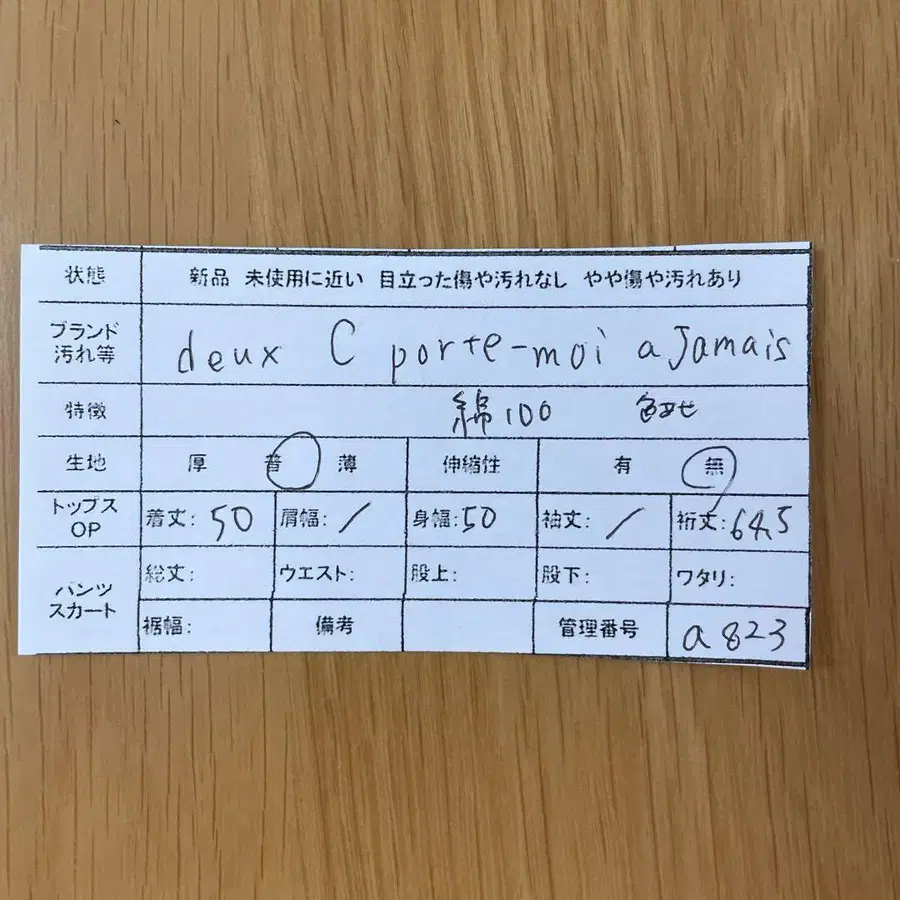 状態 新品 未使用に近い 目立った傷や汚れなし やや傷や汚れあり
ブランド
汚れ等 deux C porte-moi a Jamais
特徴 綿100 色あせ
生地 厚 普 薄 伸縮性 有 無
トップス
OP 着丈: 50 肩幅: / 身幅: 50 袖丈: / 裄丈: 64.5
パンツ
スカート 総丈: ウエスト: 股上: 股下: ワタリ:
裾幅: 備考 管理番号 a823